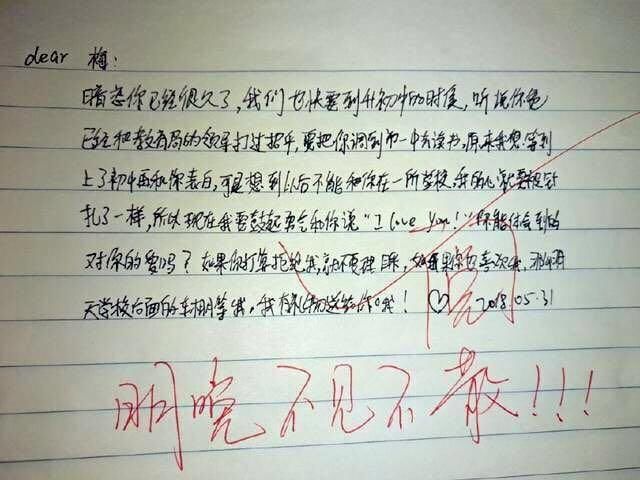 dear 梅：
暗恋你已经很久了，我们也快要到升初中的时候，听说你爸
已经和教育局的领导打过招乎，要把你调到市一中去读书，原来我想等到
上了初中再和你表白，可是想到以后不能和你在一所学校，我的心就要被针
扎了一样，所以现在我要鼓起勇气和你说“I love You!”你能体会到我
对你的爱吗？如果你打算拒绝我，就不要理睬，如果你也喜欢我，
天学校后面的车棚等我，我有礼物送给你哦！♡ 2018.05.31
明晚不见不散!!!